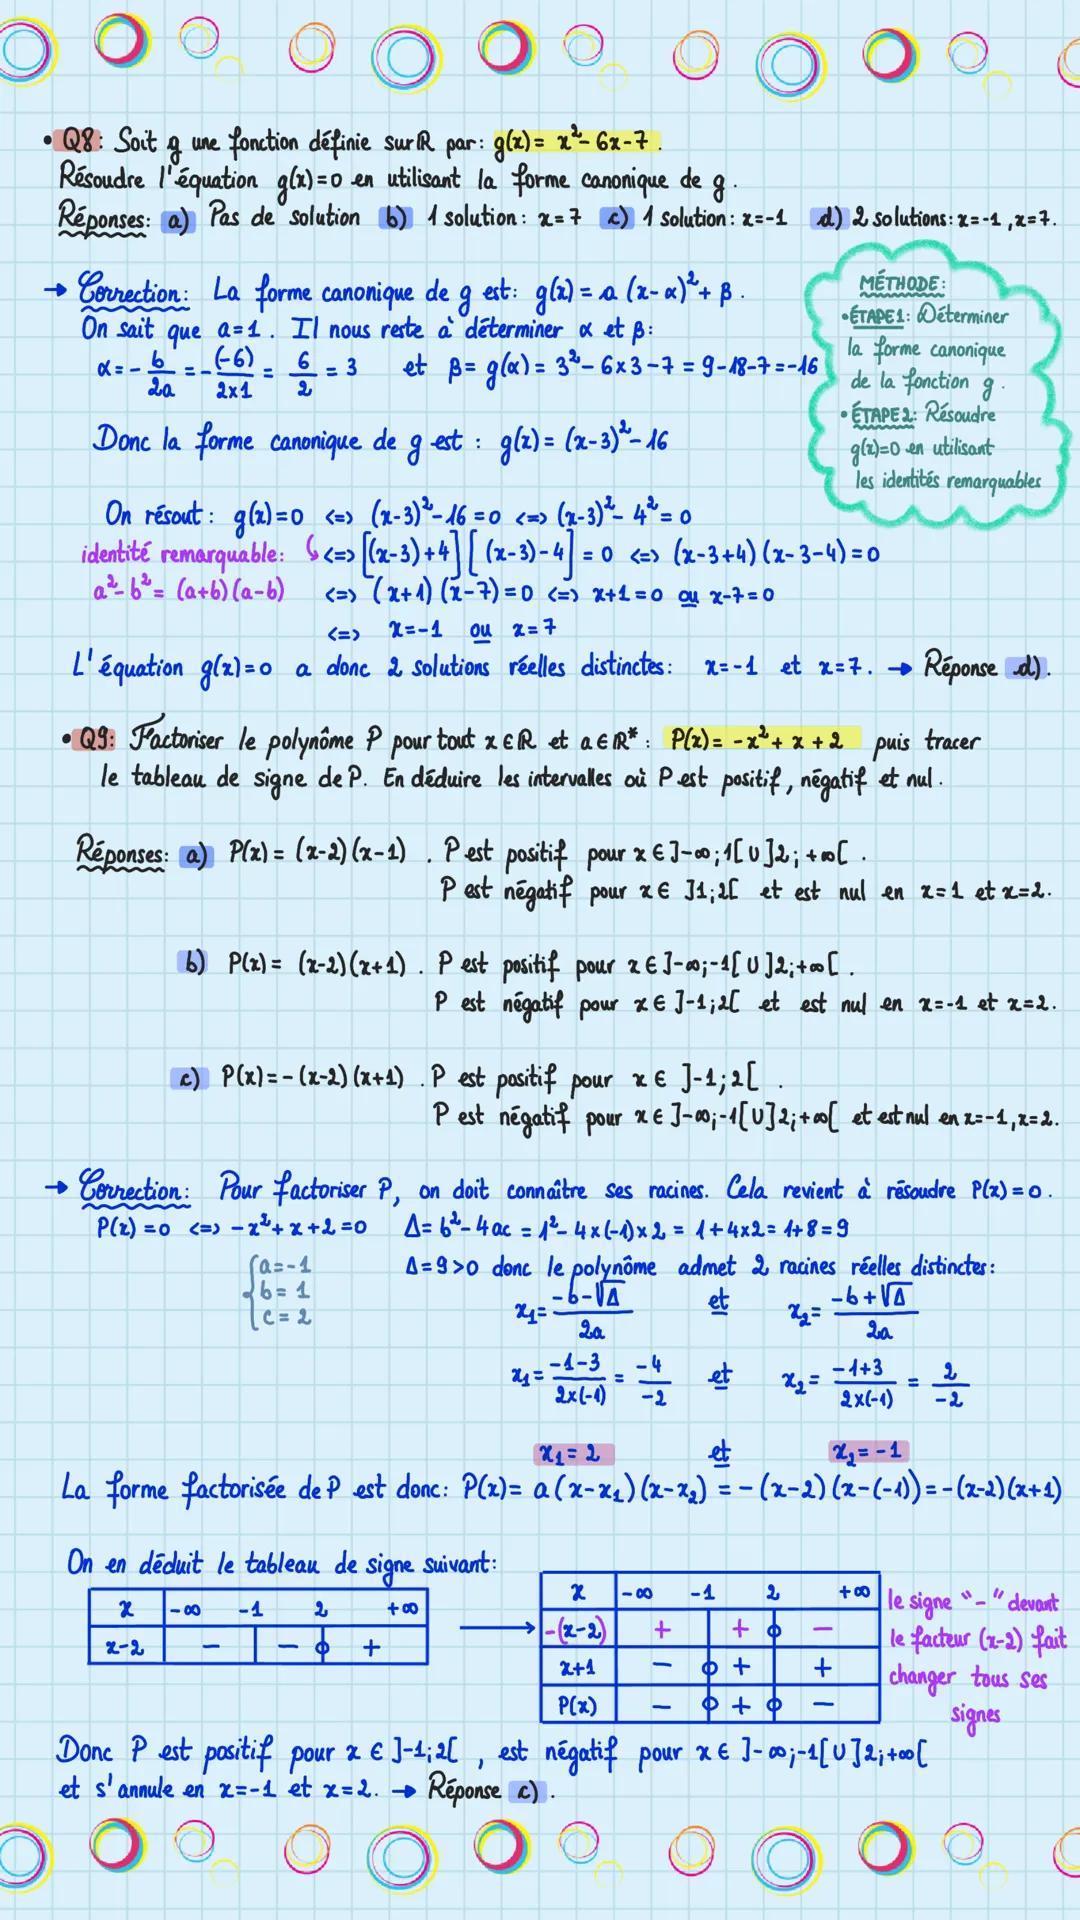 • Q8: Soit g une fonction définie sur ℝ par: g(x) = x² - 6x - 7.
Résoudre l'équation g(x) = 0 en utilisant la forme canonique de g.
Réponses: a) Pas de solution b) 1 solution: x=7 c) 1 solution: x=-1 d) 2 solutions: x=-1, x=7.
→ Correction: La forme canonique de g est: g(x) = a (x-α)² + β.
On sait que a=1. Il nous reste à déterminer α et β:
α = - b/2a = - (-6)/2×1 = 6/2 = 3 et β = g(α) = 3² - 6×3 - 7 = 9-18-7 = -16
Donc la forme canonique de g est : g(x) = (x-3)² - 16
MÉTHODE:
• ÉTAPE 1: Déterminer
la forme canonique
de la fonction g.
• ÉTAPE 2: Résoudre
g(x)=0 en utilisant
les identités remarquables
On résout: g(x)=0 <=> (x-3)² - 16 = 0 <=> (x-3)² - 4² = 0
identité remarquable: <=> [(x-3)+4] [(x-3)-4] = 0 <=> (x-3+4) (x-3-4) = 0
a² - b² = (a+b) (a-b) <=> (x+1) (x-7) = 0 <=> x+1=0 ou x-7=0
<=> x=-1 ou x=7
L'équation g(x)=0 a donc 2 solutions réelles distinctes: x=-1 et x=7. → Réponse d).
• Q9: Factoriser le polynôme P pour tout x ∈ ℝ et a ∈ ℝ* : P(x) = -x² + x + 2 puis tracer
le tableau de signe de P. En déduire les intervalles où P est positif, négatif et nul.
Réponses: a) P(x) = (x-2) (x-1) . P est positif pour x ∈ ]-∞;1[ U ]2;+∞[ .
P est négatif pour x ∈ ]1;2[ et est nul en x=1 et x=2.
b) P(x) = (x-2) (x+1) . P est positif pour x ∈ ]-∞;-1[ U ]2;+∞[ .
P est négatif pour x ∈ ]-1;2[ et est nul en x=-1 et x=2.
c) P(x) = - (x-2) (x+1) . P est positif pour x ∈ ]-1;2[ .
P est négatif pour x ∈ ]-∞;-1[ U ]2;+∞[ et est nul en x=-1, x=2.
→ Correction: Pour factoriser P, on doit connaître ses racines. Cela revient à résoudre P(x) = 0.
P(x) = 0 <=> -x² + x + 2 = 0 Δ = b² - 4ac = 1² - 4×(-1)×2 = 1 + 4×2 = 1+8 = 9
{ a=-1
b=1
c=2
Δ = 9 > 0 donc le polynôme admet 2 racines réelles distinctes:
x₁ = -b-√Δ/2a et x₂ = -b+√Δ/2a
x₁ = -1-3/2×(-1) = -4/-2 et x₂ = -1+3/2×(-1) = 2/-2
x₁ = 2 et x₂ = -1
La forme factorisée de P est donc: P(x) = a (x-x₁) (x-x₂) = - (x-2) (x-(-1)) = - (x-2) (x+1)
On en déduit le tableau de signe suivant:
x -∞ -1 2 +∞
x-2 - - 0 +
→
x -∞ -1 2 +∞
-(x-2) + + 0 -
x+1 - 0 + +
P(x) - 0 + 0 -
le signe "-" devant
le facteur (x-2) fait
changer tous ses
signes
Donc P est positif pour x ∈ ]-1;2[ , est négatif pour x ∈ ]-∞;-1[ U ]2;+∞[
et s'annule en x=-1 et x=2. → Réponse c).